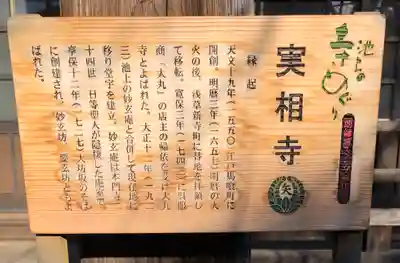 池上の
寺めぐり
実相寺
縁起
天文十九年(一五五〇)江戸馬喰町に
開創。明暦三年(一六五七)明暦の大
火の後、浅草新寺町に替地を拝領し
て移転。寛保二年(一七四二)に呉服
商「大丸」の店主の帰依を受け大丸
寺とよばれた。大正十二年(一九二
三)池上の妙玄庵と合併して現在地に
移り堂宇を建立。妙玄庵は本門寺二
十四世 日等聖人が隠棲した庵室で、
享保十二年(一七二七)大坊坂のそば
に創建され、妙玄坊・慶玄坊ともよ
ばれた。